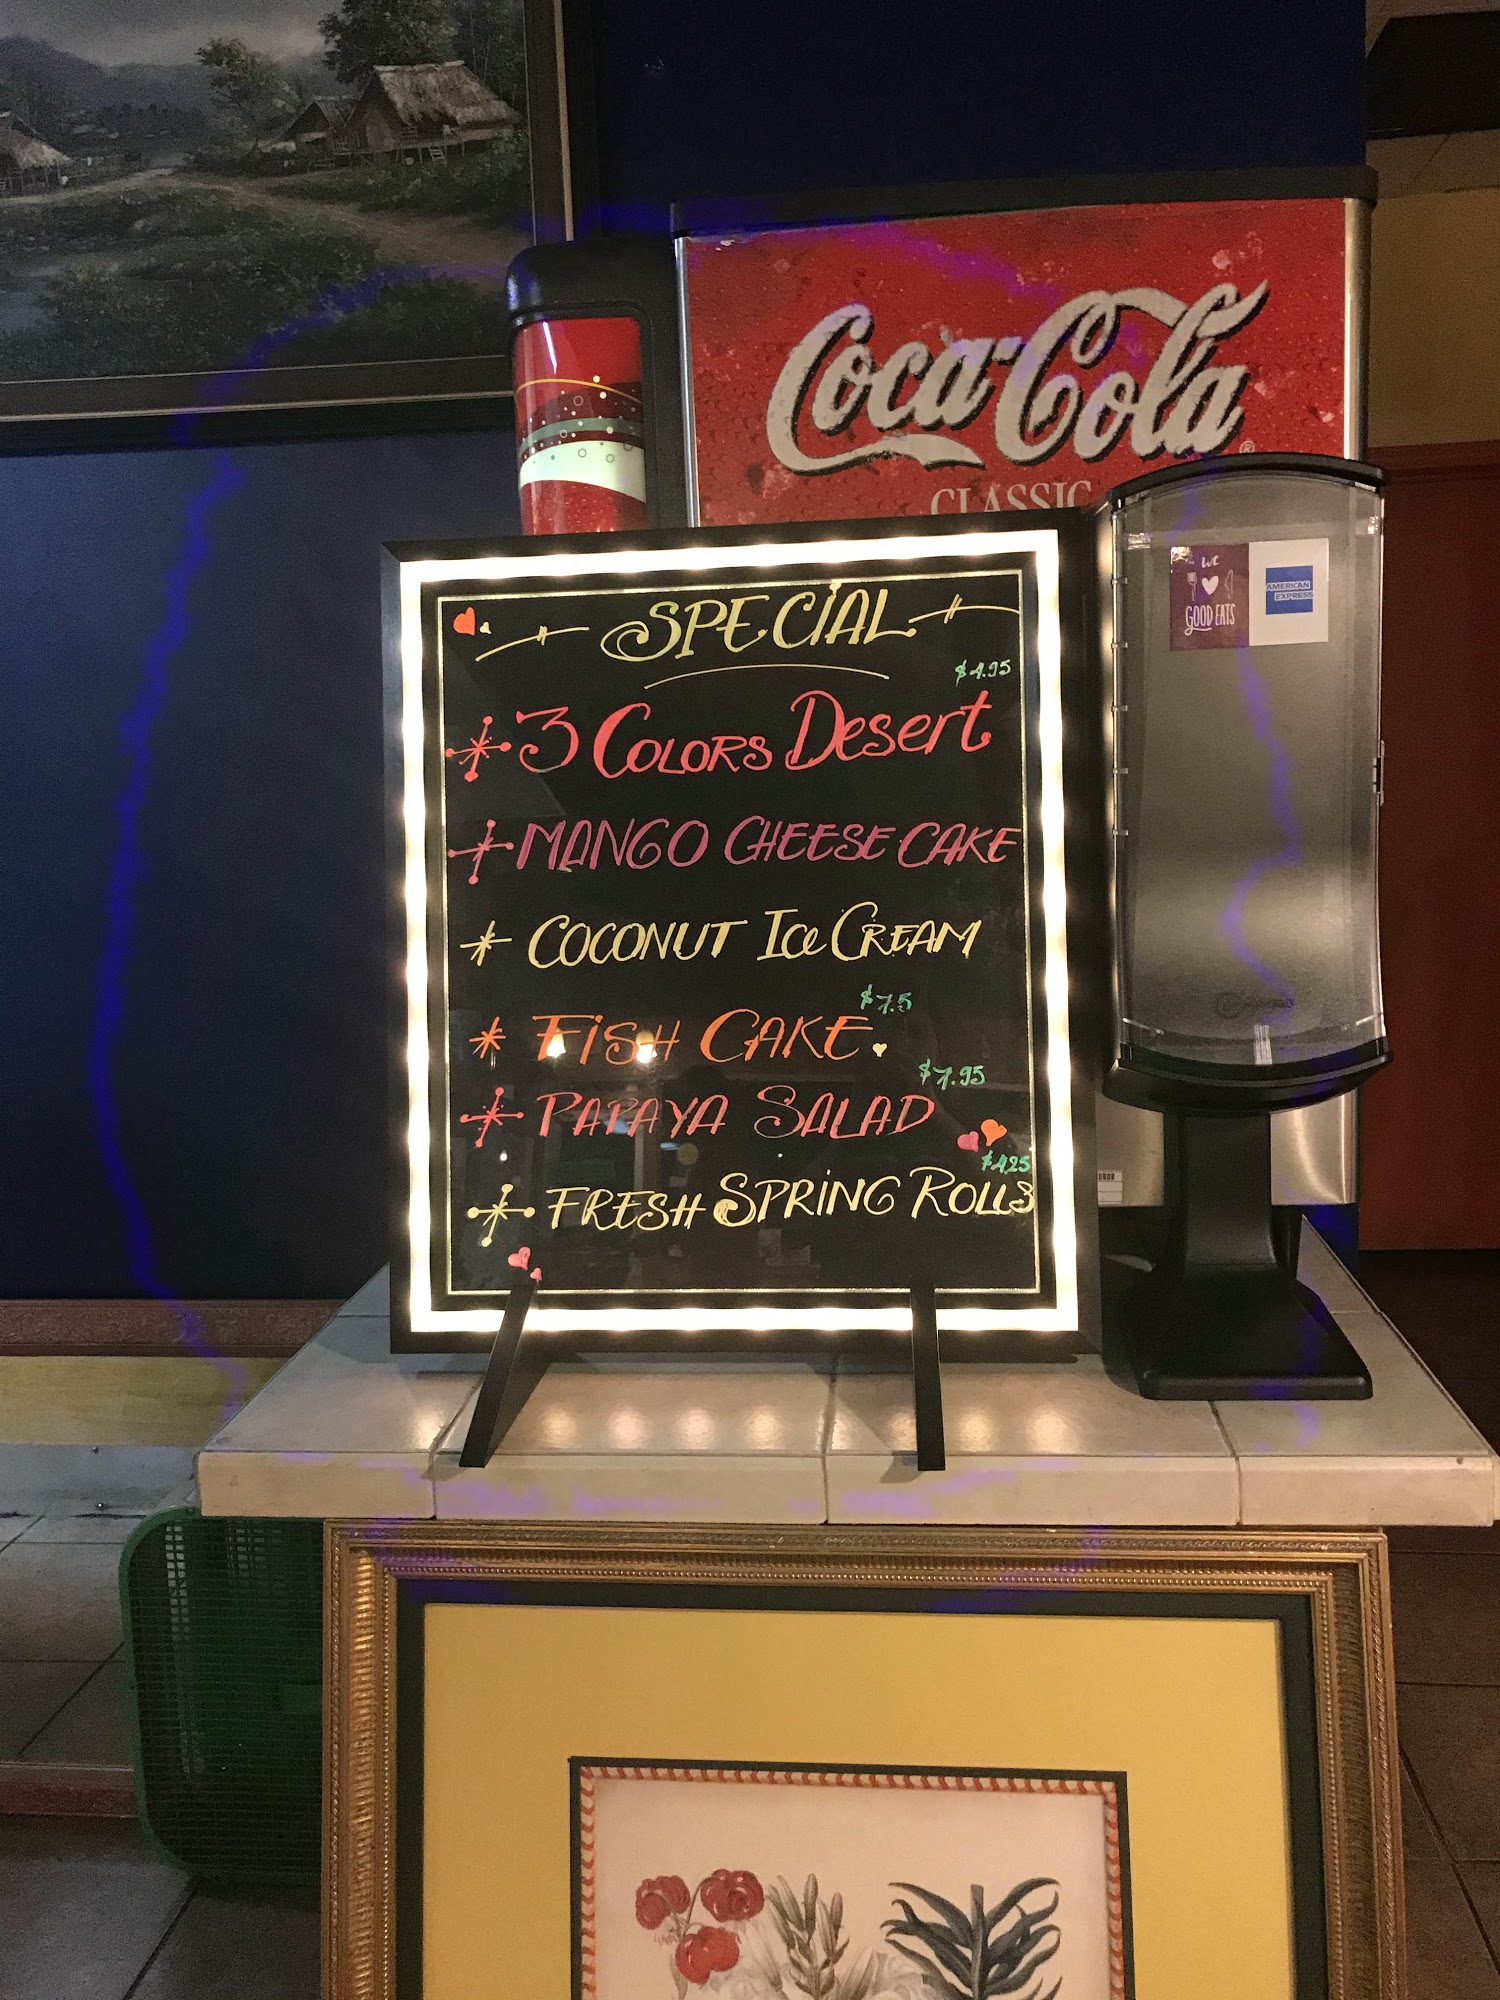 Coca-Cola
®
CLASSIC
WE
GOOD EATS
AMERICAN
EXPRESS
SPECIAL
$4.95
3 COLORS Desert
MANGO CHEESE CAKE
COCONUT Ice CREAM
$7.5
FiSH CAKE
$7.95
PAPAYA SALAD
$4.25
FRESH SPRiNG ROLLS